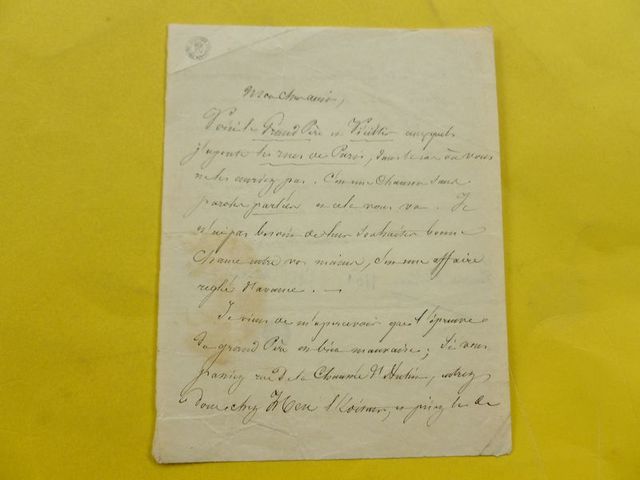 Mon cher ami,
Voici le Grand Père et Vieillir auxquels
j'ajoute les rues de Paris, dans le cas où vous
ne les auriez pas. C'est une Chanson sans
paroles
et cela vous va. Je
n'ai pas besoin de leur souhaiter bonne
Chance entre vos mains, c'est une affaire
réglée d'avance. —
Je viens de m'apercevoir que l'épreuve
du grand Père est bien mauvaise; Si vous
passiez rue de la Chaussée d'Antin, entrez
donc chez et priez le de